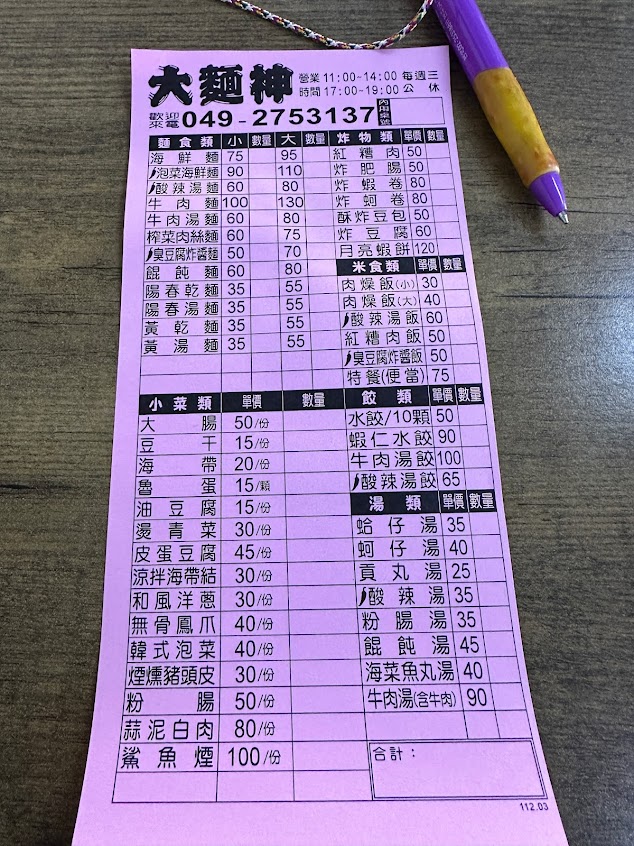 大麵神
營業 11:00~14:00 每週三
時間 17:00~19:00 公休
歡迎來電 049-2753137 內用桌號
麵食類 小 數量 大 數量
海鮮麵 75 95
泡菜海鮮麵 90 110
酸辣湯麵 60 80
牛肉麵 100 130
牛肉湯麵 60 80
榨菜肉絲麵 60 75
臭豆腐炸醬麵 50 70
餛飩麵 60 80
陽春乾麵 35 55
陽春湯麵 35 55
黃乾麵 35 55
黃湯麵 35 55
炸物類 單價 數量
紅糟肉 50
炸肥腸 50
炸蝦卷 80
炸蚵卷 80
酥炸豆包 50
炸豆腐 60
月亮蝦餅 120
米食類 單價 數量
肉燥飯(小) 30
肉燥飯(大) 40
酸辣湯飯 60
紅糟肉飯 50
臭豆腐炸醬飯 50
特餐(便當) 75
小菜類 單價 數量
大腸 50/份
豆干 15/份
海帶 20/份
魯蛋 15/顆
油豆腐 15/份
燙青菜 30/份
皮蛋豆腐 45/份
涼拌海帶結 30/份
和風洋蔥 30/份
無骨鳳爪 40/份
韓式泡菜 40/份
煙燻豬頭皮 30/份
粉腸 50/份
蒜泥白肉 80/份
鯊魚煙 100/份
餃類 單價 數量
水餃/10顆 50
蝦仁水餃 90
牛肉湯餃 100
酸辣湯餃 65
湯類 單價 數量
蛤仔湯 35
蚵仔湯 40
貢丸湯 25
酸辣湯 35
粉腸湯 35
餛飩湯 45
海菜魚丸湯 40
牛肉湯(含牛肉) 90
合計：
112.03